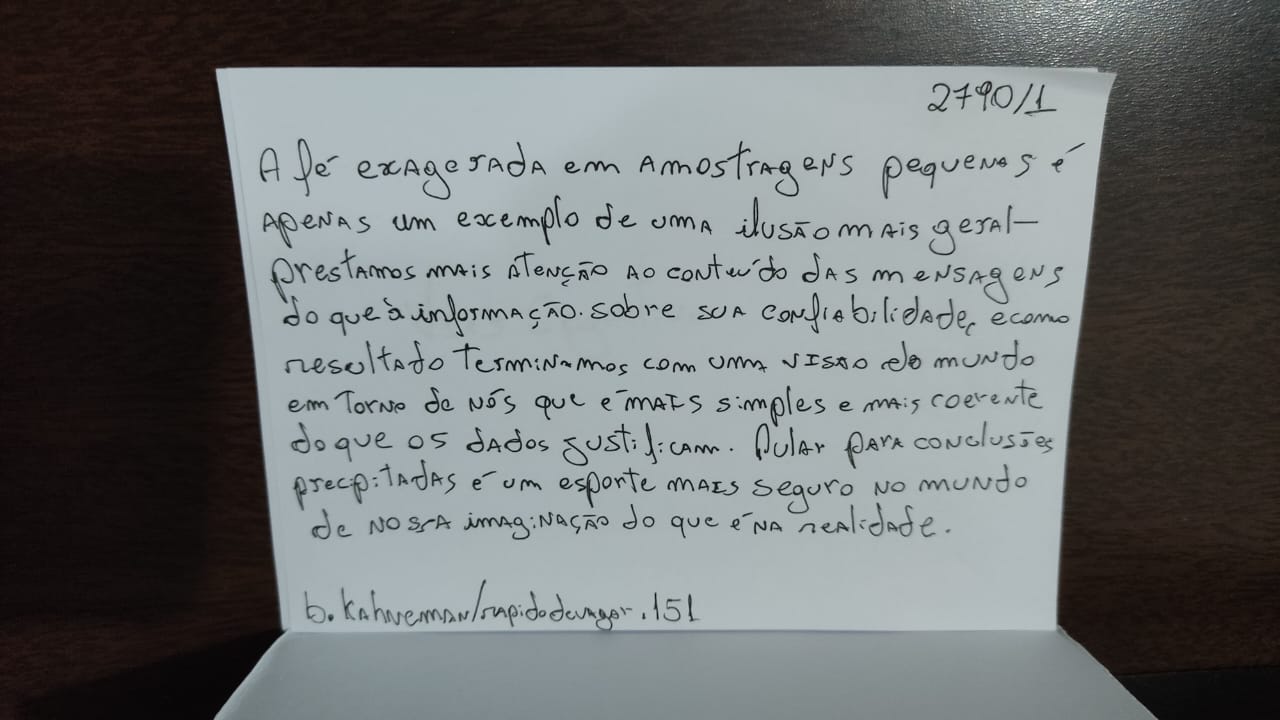 2790/1
A fé exagerada em amostragens pequenas é
apenas um exemplo de uma ilusão mais geral —
prestamos mais atenção ao conteúdo das mensagens
do que à informação sobre sua confiabilidade, e como
resultado terminamos com uma visão do mundo
em torno de nós que é mais simples e mais coerente
do que os dados justificam. Pular para conclusões
precipitadas é um esporte mais seguro no mundo
de nossa imaginação do que é na realidade.
b. Kahneman/rapidodevagar.151